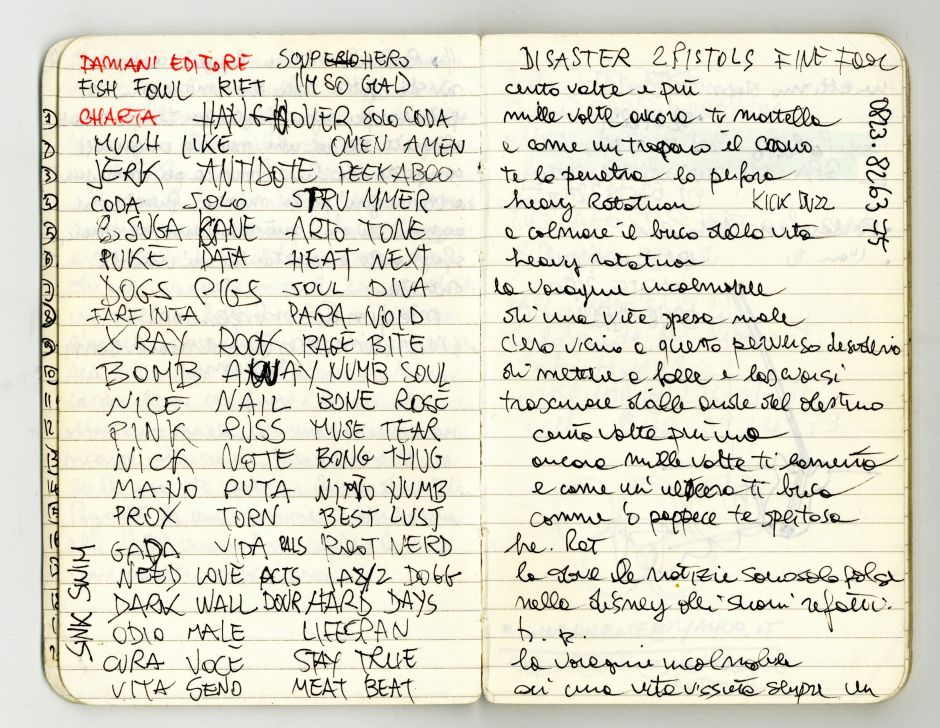 DAMIANI EDITORE SOUPERHERO
FISH FOWL RIFT I'M SO GLAD
CHARTA HANGOVER SOLO CODA
MUCH LIKE OMEN AMEN
JERK ANTIDOTE PEEKABOO
CODA SOLO STRUMMER
KANE ARTO TONE
PUKE DATA HEAT NEXT
DOGS PIGS SOUL DIVA
FARFINTA PARA NOID
X RAY ROCK RAGE BITE
BOMB AWAY NUMB SOUL
NICE NAIL BONE ROSE
PINK PUSS MUSE TEAR
NICK NOTE BONG THUG
MANO PUTA NUMB
PROX TORN BEST LUST
VIDA RIOT NERD
NEED LOVE ACTS DOGG
DARK WALL DOUR HARD DAYS
ODIO MALE LIFESPAN
CURA VOCE STAY TRUE
VITA SENO MEAT BEAT
SINK SWIM
DISASTER 2 PISTOLS FINE FOUR
cento volte e più
mille volte ancora ti martella
e come un trapano il cranio
te lo penetra lo perfora
heavy Rotation KICK BUZZ
a colmare il buco della vita
heavy rotation
la voragine incolmabile
di una vita spesa male
c'ero vicino a questo perverso desiderio
di mettere a folle e lasciarsi
trascinare dalle onde del destino
cento volte più una
ancora mille volte ti lamenta
e come un' ulcera ti buca
comme 'o pappece te spertosa
he. Rot
la storia le notizie sono solo false
nella disney degli suoni refatti.
h. R.
la voragine incolmabile
di una vita vissuta sempre un
0823. 82 63 75